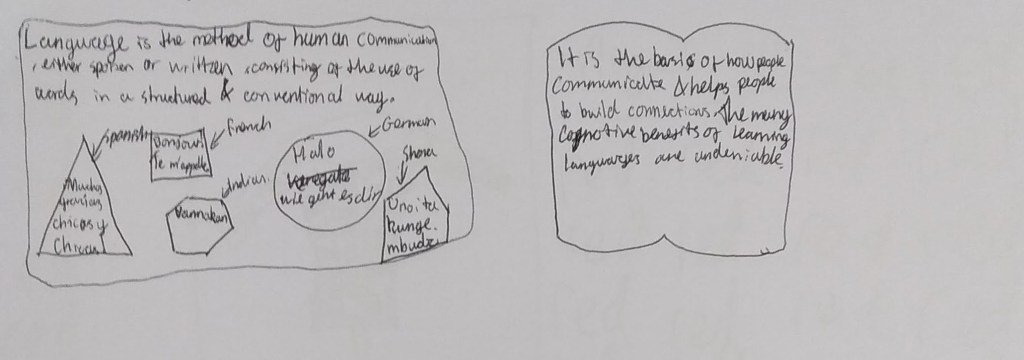 Language is the method of human communication
, either spoken or written , consisting of the use of
words in a structured & conventional way.
Spanish
French
German
Shona
Indian
Bonjour
Je m'appelle
Halo
wie geht es dir
Mucha
gracias
chicos y
Chicas
Vannakan
Unoita
kunge
mbudzi
It is the basis of how people
communicate & helps people
to build connections. The many
Cognotive benefits of learning
languages are undeniable.